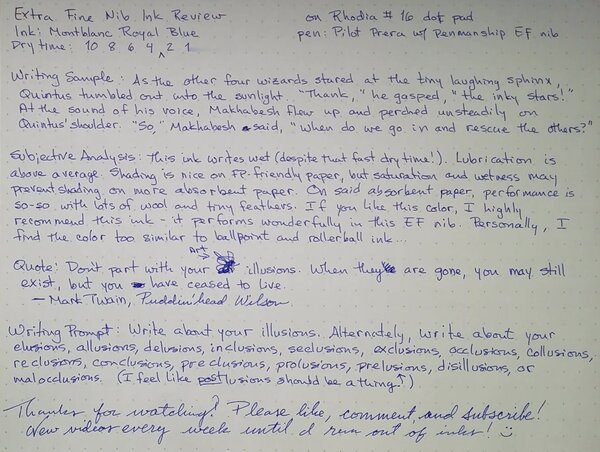 Extra Fine Nib Ink Review on Rhodia #16 dot pad
Ink: Montblanc Royal Blue pen: Pilot Prera w/ Penmanship EF nib
Dry time: 10 8 6 4 ^ 2 1
Writing Sample: As the other four wizards stared at the tiny laughing sphinx,
Quintus tumbled out into the sunlight. "Thank," he gasped, "the inky stars!"
At the sound of his voice, Makhabesh flew up and perched unsteadily on
Quintus' shoulder. "So," Makhabesh said, "when do we go in and rescue the others?"
Subjective Analysis: This ink writes wet (despite that fast dry time!). Lubrication is
above average. Shading is nice on FP-friendly paper, but saturation and wetness may
prevent shading on more absorbent paper. On said absorbent paper, performance is
so-so with lots of wool and tiny feathers. If you like this color, I highly
recommend this ink - it performs wonderfully in this EF nib. Personally, I
find the color too similar to ballpoint and rollerball ink...
Quote: Don't part with your illusions. When they are gone, you may still
exist, but you have ceased to live.
- Mark Twain, Pudd'nhead Wilson
Writing Prompt: Write about your illusions. Alternately, write about your
elusions, allusions, delusions, inclusions, seclusions, exclusions, occlusions, collusions,
reclusions, conclusions, preclusions, prolusions, prelusions, disillusions, or
malocclusions. (I feel like postlusions should be a thing!)
Thanks for watching! Please like, comment, and subscribe!
New videos every week until I run out of inks! :)